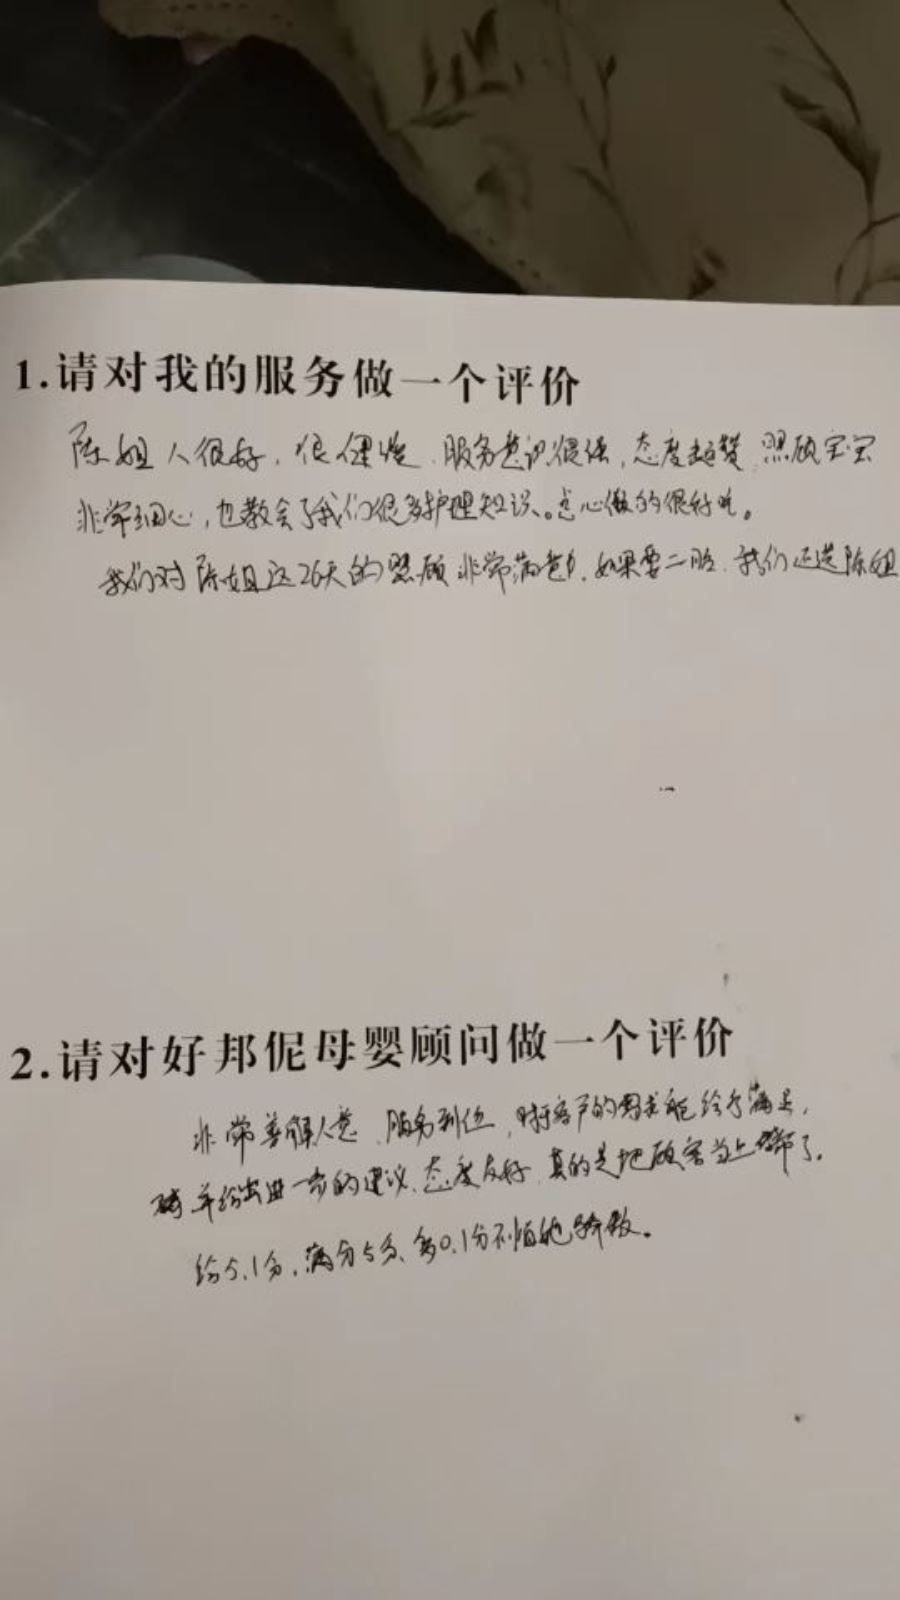 1.请对我的服务做一个评价
陈姐人很好，很健谈，服务意识很强，态度超赞，照顾宝宝
非常细心，也教会了我们很多护理知识。点心做的很好吃。
我们对陈姐这26天的照顾非常满意，如果要二胎，我们还选陈姐
2.请对好邦伲母婴顾问做一个评价
非常善解人意，服务到位，对于客户的需求能给予满足，
并给出进一步的建议，态度友好，真的是把顾客当上帝了。
给5.1分，满分5分，多0.1分不怕她骄傲。